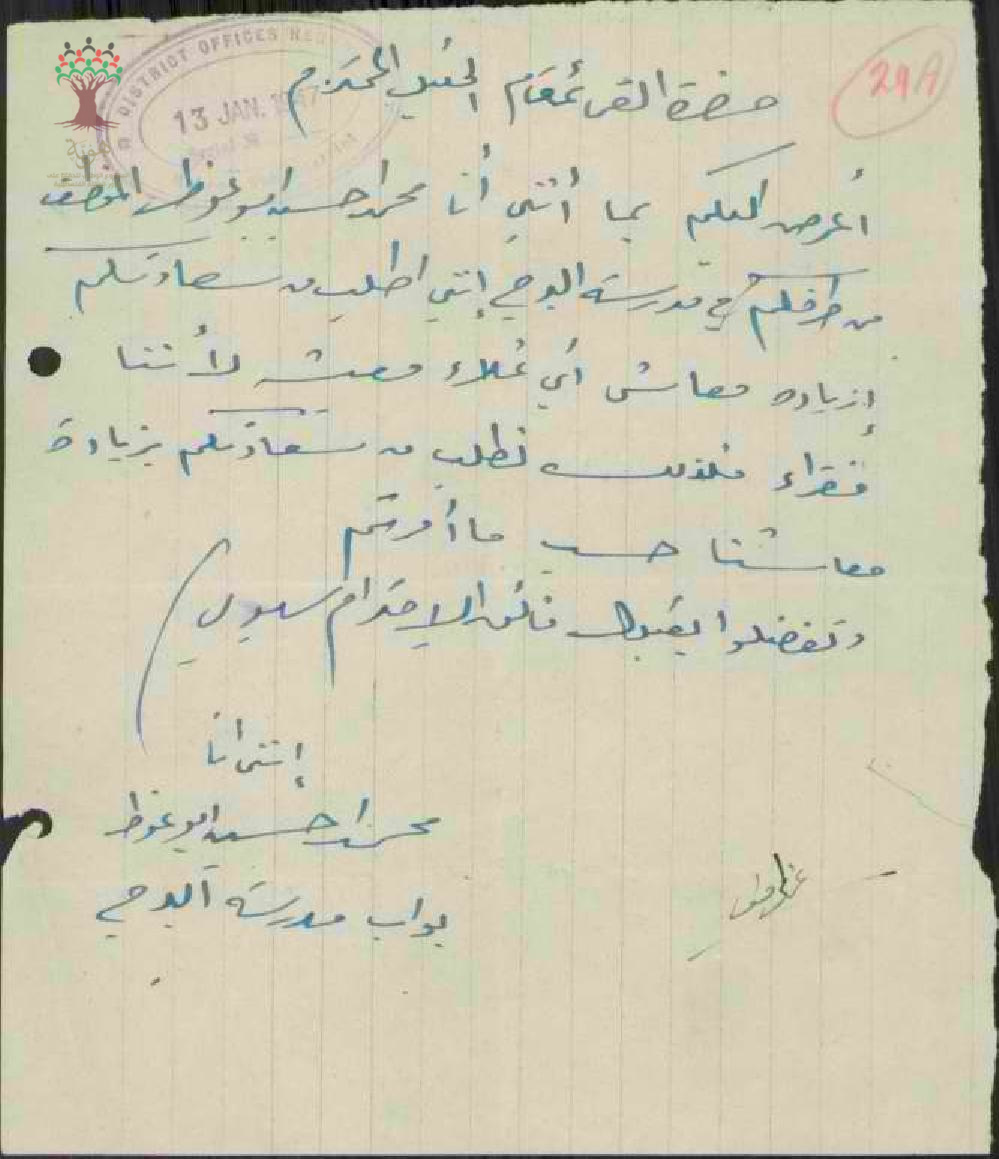 DISTRICT OFFICES
13 JAN.
29A
حضرة القائمقام المحترم
أعرض اليكم بما أنني أنا محمد حسين ابو غوظ الموظف
من طرفكم في مدرسة البرج إنني اطلب من سعادتكم
إزيادة معاش أي غلاء معيشه لأننا
فقراء فلذلك نطلب من سعادتكم بزيادة
معاشنا حسب ما أمرتم
وتفضلوا بقبول فائق الاحترام سيدي
إنني انا
محمد حسين ابو غوظ
بواب مدرسة البرج